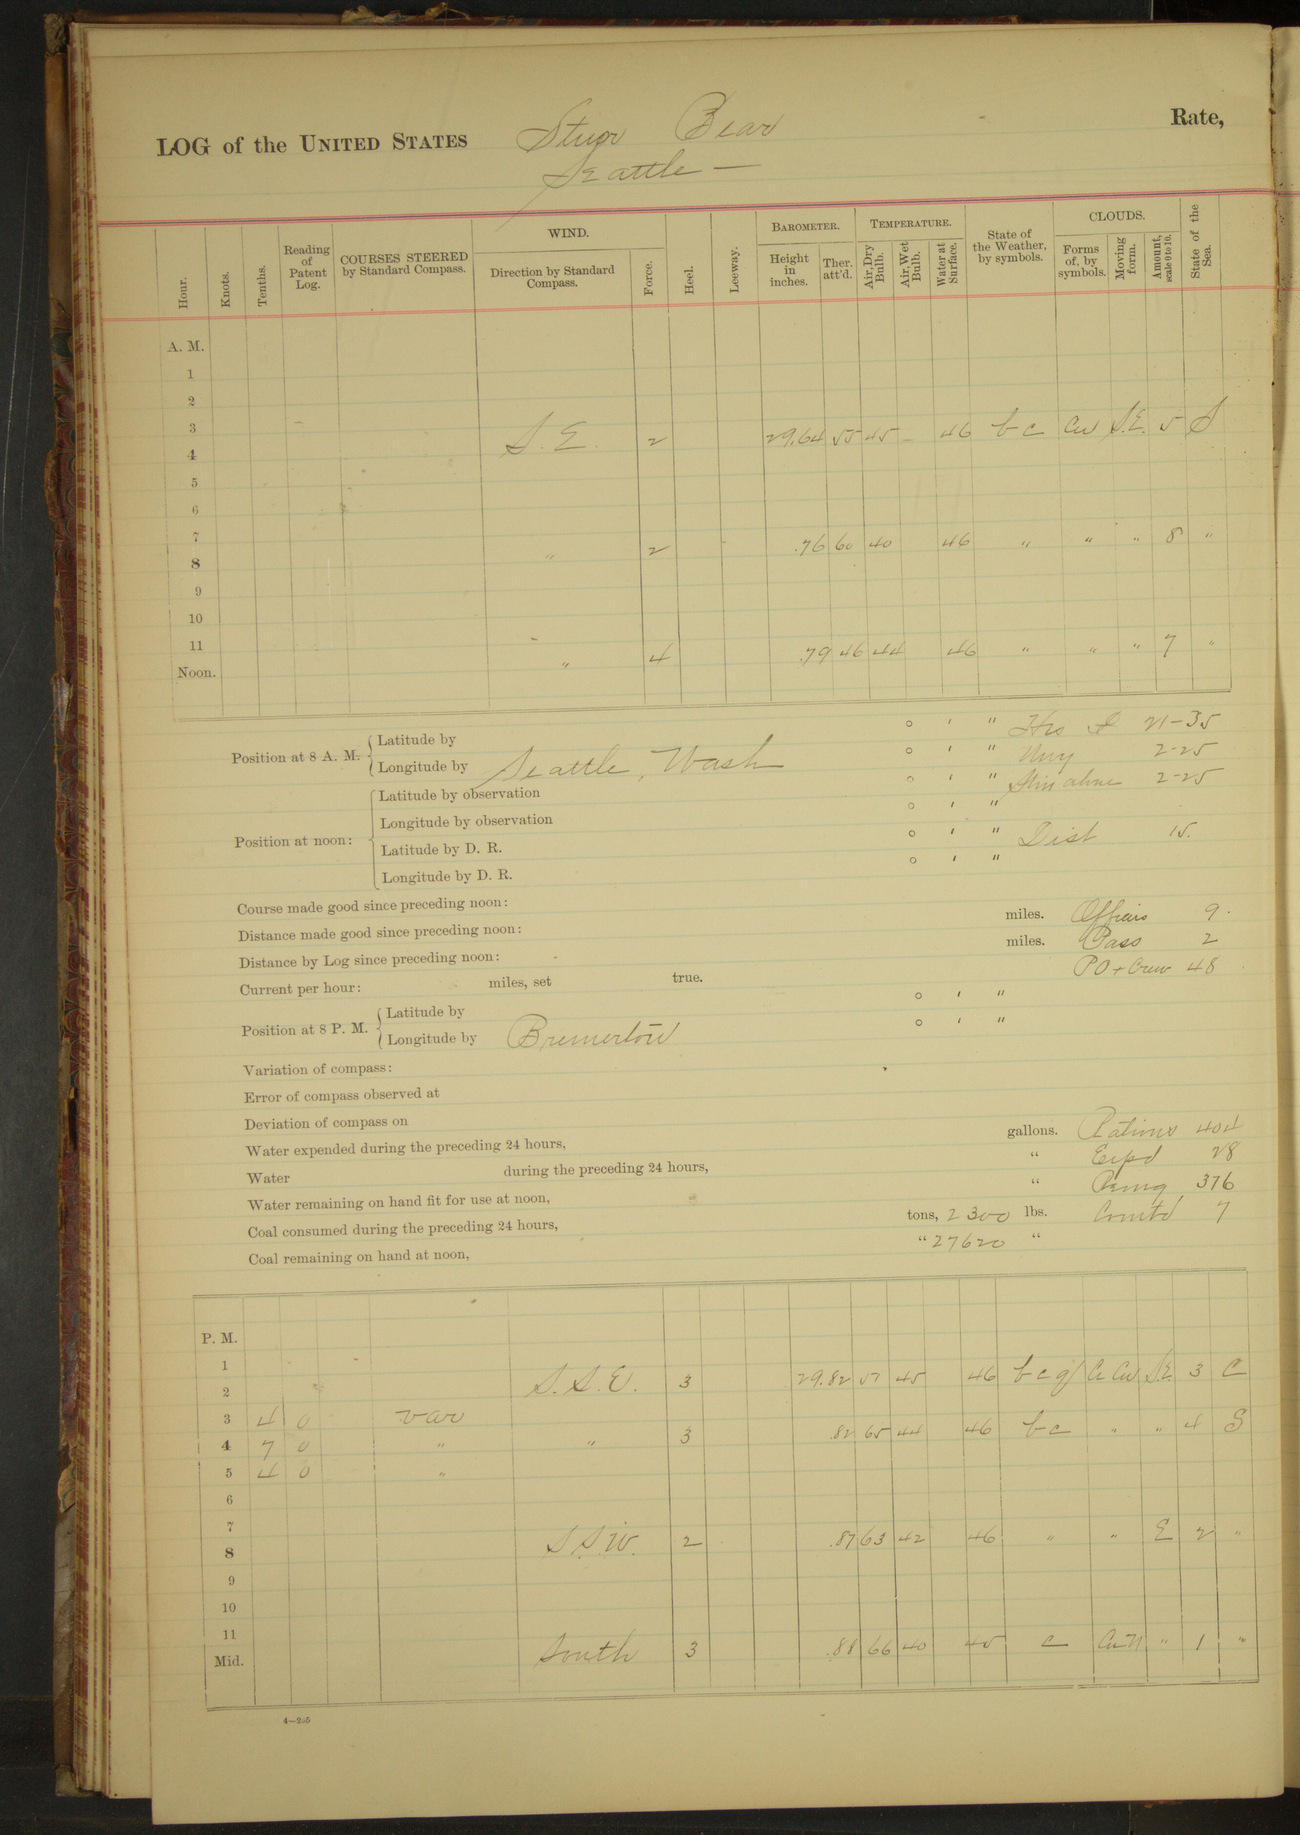 LOG of the UNITED STATES Stmr Bear Rate,
Seattle —
Hour. Knots. Tenths. Reading of Patent Log. COURSES STEERED by Standard Compass. WIND. Direction by Standard Compass. Force. Heel. Leeway. BAROMETER. Height in inches. Ther. att'd. TEMPERATURE. Air, Dry Bulb. Air, Wet Bulb. Water at Surface. State of the Weather, by symbols. CLOUDS. Forms of, by symbols. Moving form. Amount, scale 0 to 10. State of the Sea.
A. M.
1
2
3
4 S. E. 2 29.64 55 45 – 46 b c Cu S.E. 5 S
5
6
7
8 " 2 .76 60 40 46 " " " 8 "
9
10
11
Noon. " 4 .79 46 44 46 " " " 7 "
Position at 8 A. M. Latitude by ° ' " Hrs 21-35
Longitude by Seattle, Wash ° ' " Uwy 2-25
Position at noon: Latitude by observation ° ' " Stm alone 2-25
Longitude by observation ° ' "
Latitude by D. R. ° ' " Dist 15.
Longitude by D. R. ° ' "
Course made good since preceding noon:
Distance made good since preceding noon: miles. Officers 9.
Distance by Log since preceding noon: miles. Pass 2
Current per hour: miles, set true. PO + Crew 48
Position at 8 P. M. Latitude by ° ' "
Longitude by Bremerton ° ' "
Variation of compass:
Error of compass observed at
Deviation of compass on
Water expended during the preceding 24 hours, gallons. Rations 404
Water during the preceding 24 hours, " Expd 28
Water remaining on hand fit for use at noon, " Remg 376
Coal consumed during the preceding 24 hours, tons, 2300 lbs. Comtd 7
Coal remaining on hand at noon, " 27620 "
P. M.
1
2 S. S. E. 3 29.82 57 45 46 b c q Ci Cu S.E. 3 C
3 4 0 var
4 7 0 " " 3 .82 65 44 46 b c " " 4 S
5 4 0 "
6
7
8 S S. W. 2 .87 63 42 46 " " E 2 "
9
10
11
Mid. South 3 .88 66 40 45 c Cu-N " 1 "
4—205